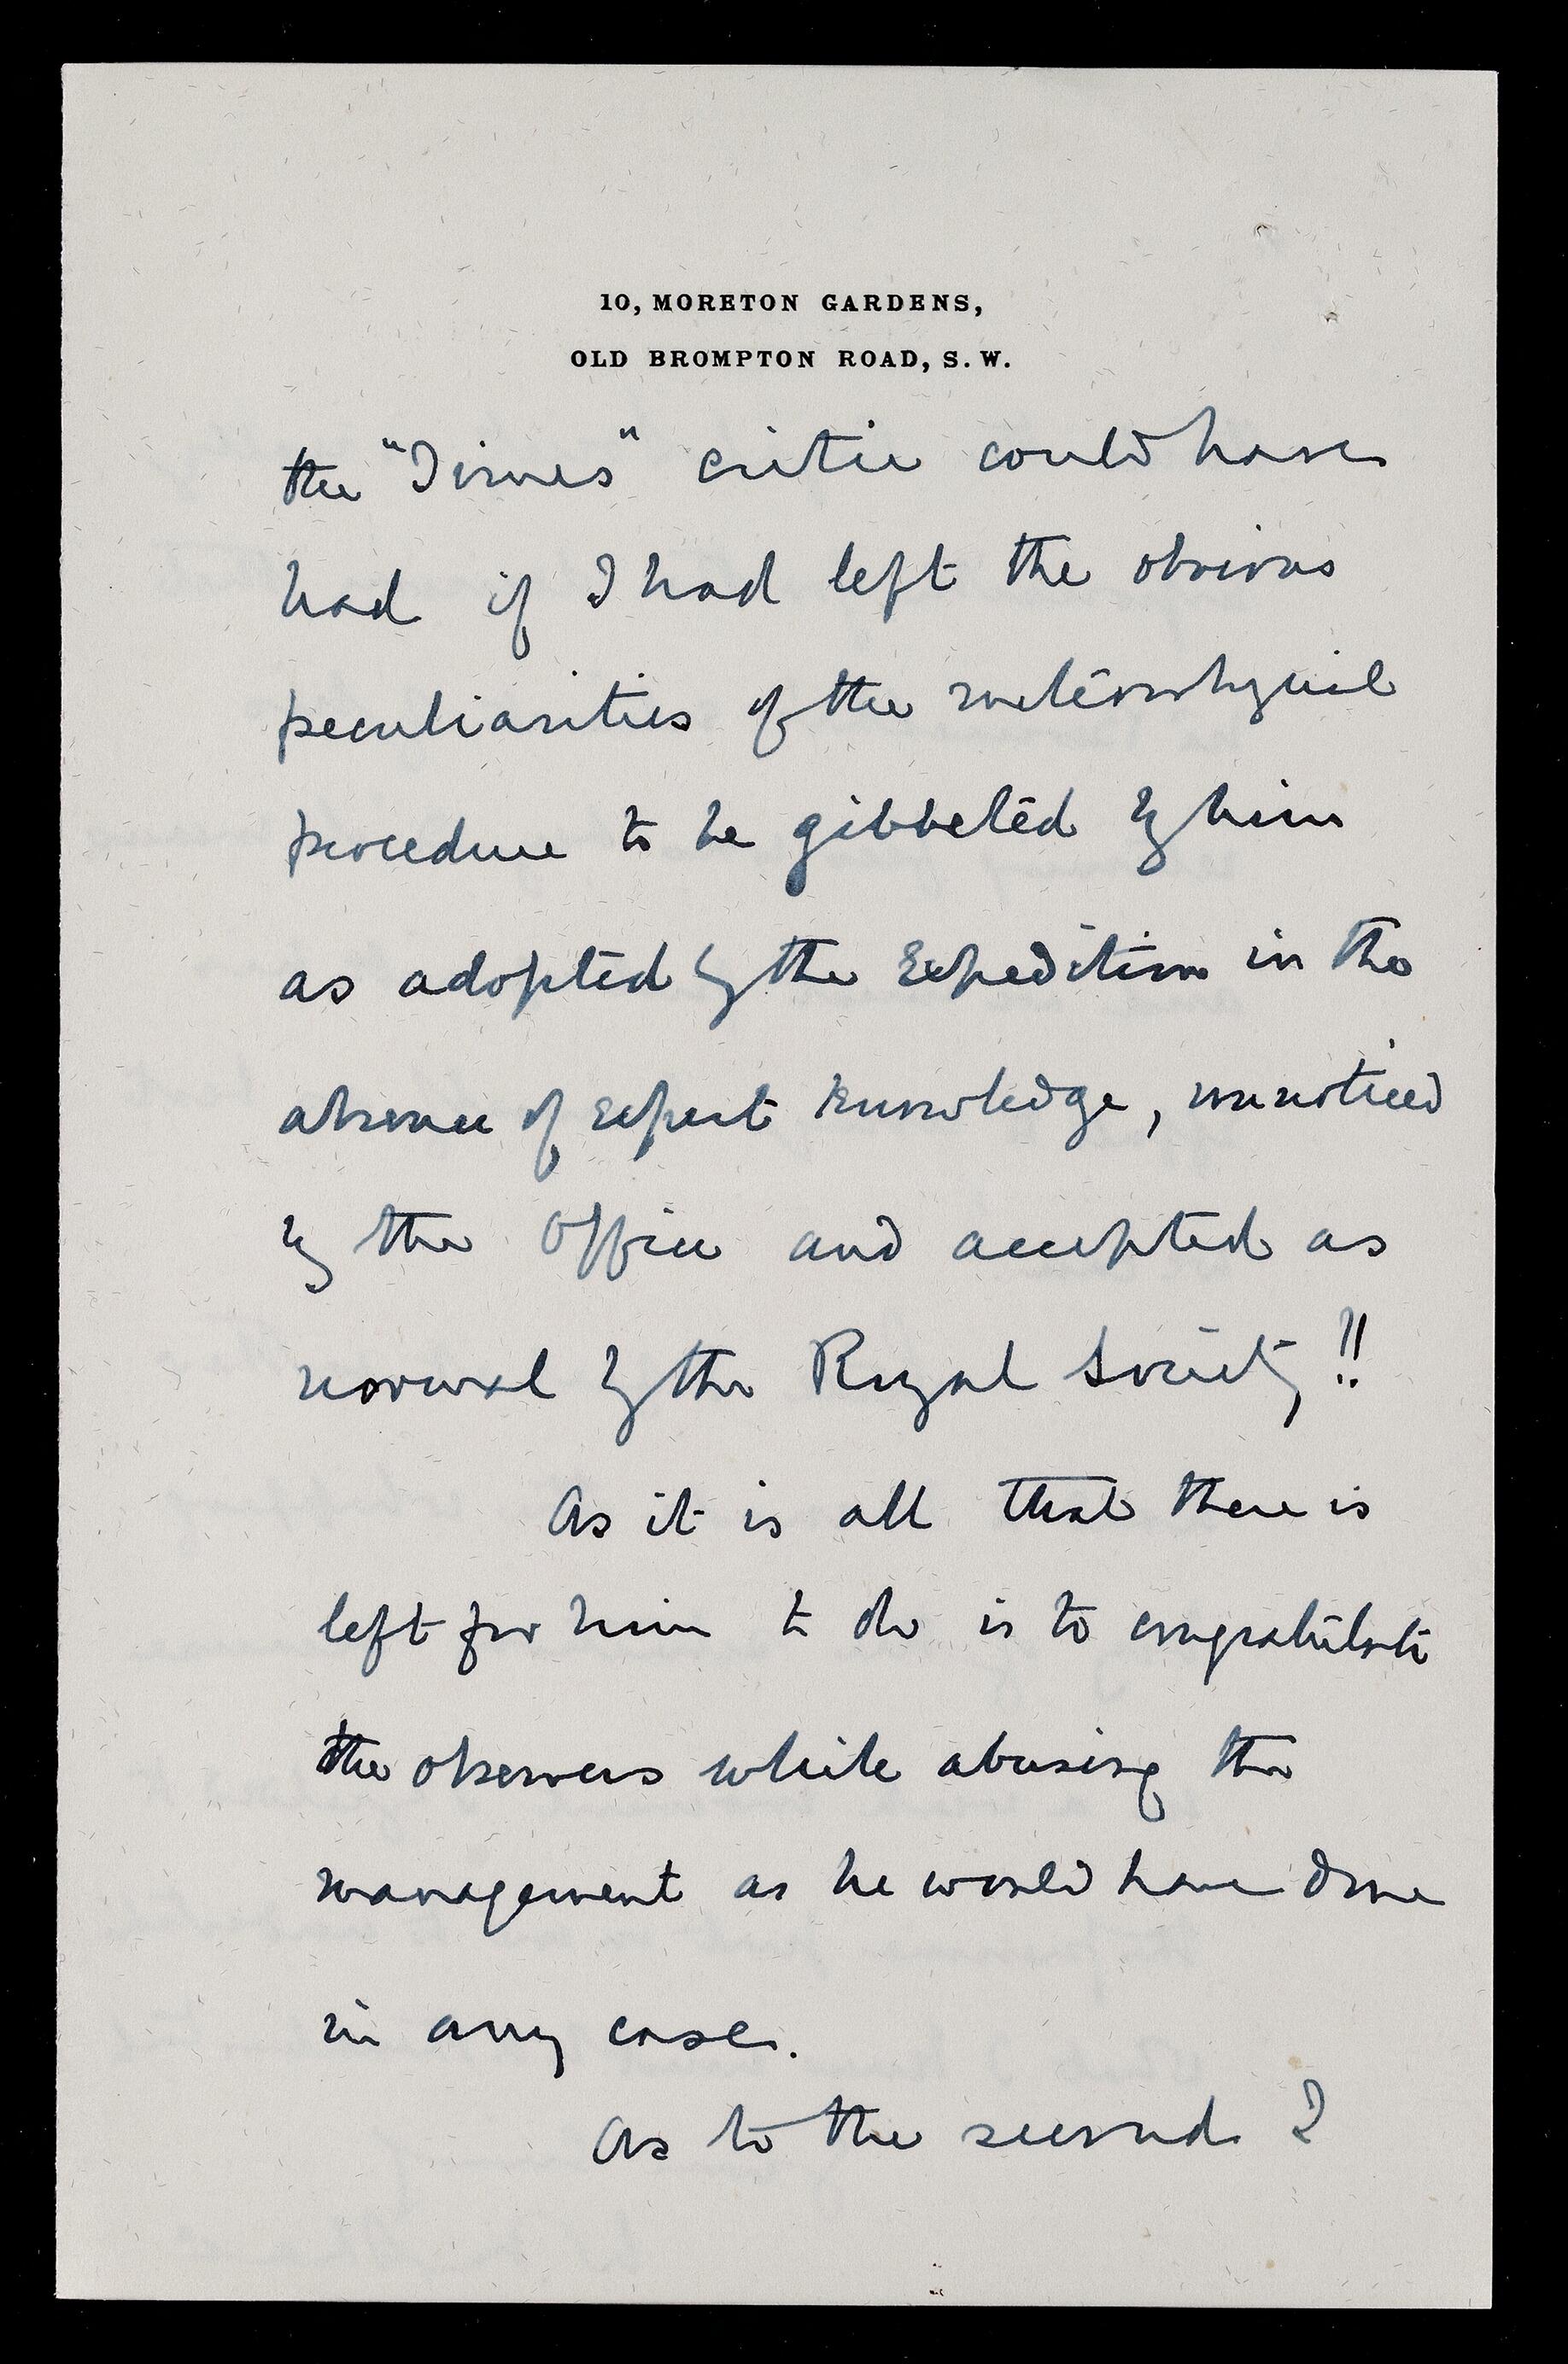 10, MORETON GARDENS,
OLD BROMPTON ROAD, S.W.
the "Times" critic could have
had if I had left the obvious
peculiarities of the meteorological
procedure to be gibbeted by him
as adopted by the Expedition in the
absence of expert knowledge, unnoticed
by the Office and accepted as
normal by the Royal Society!!
As it is all that there is
left for him to do is to congratulate
the observers while abusing the
management as he would have done
in any case.
As to the second I